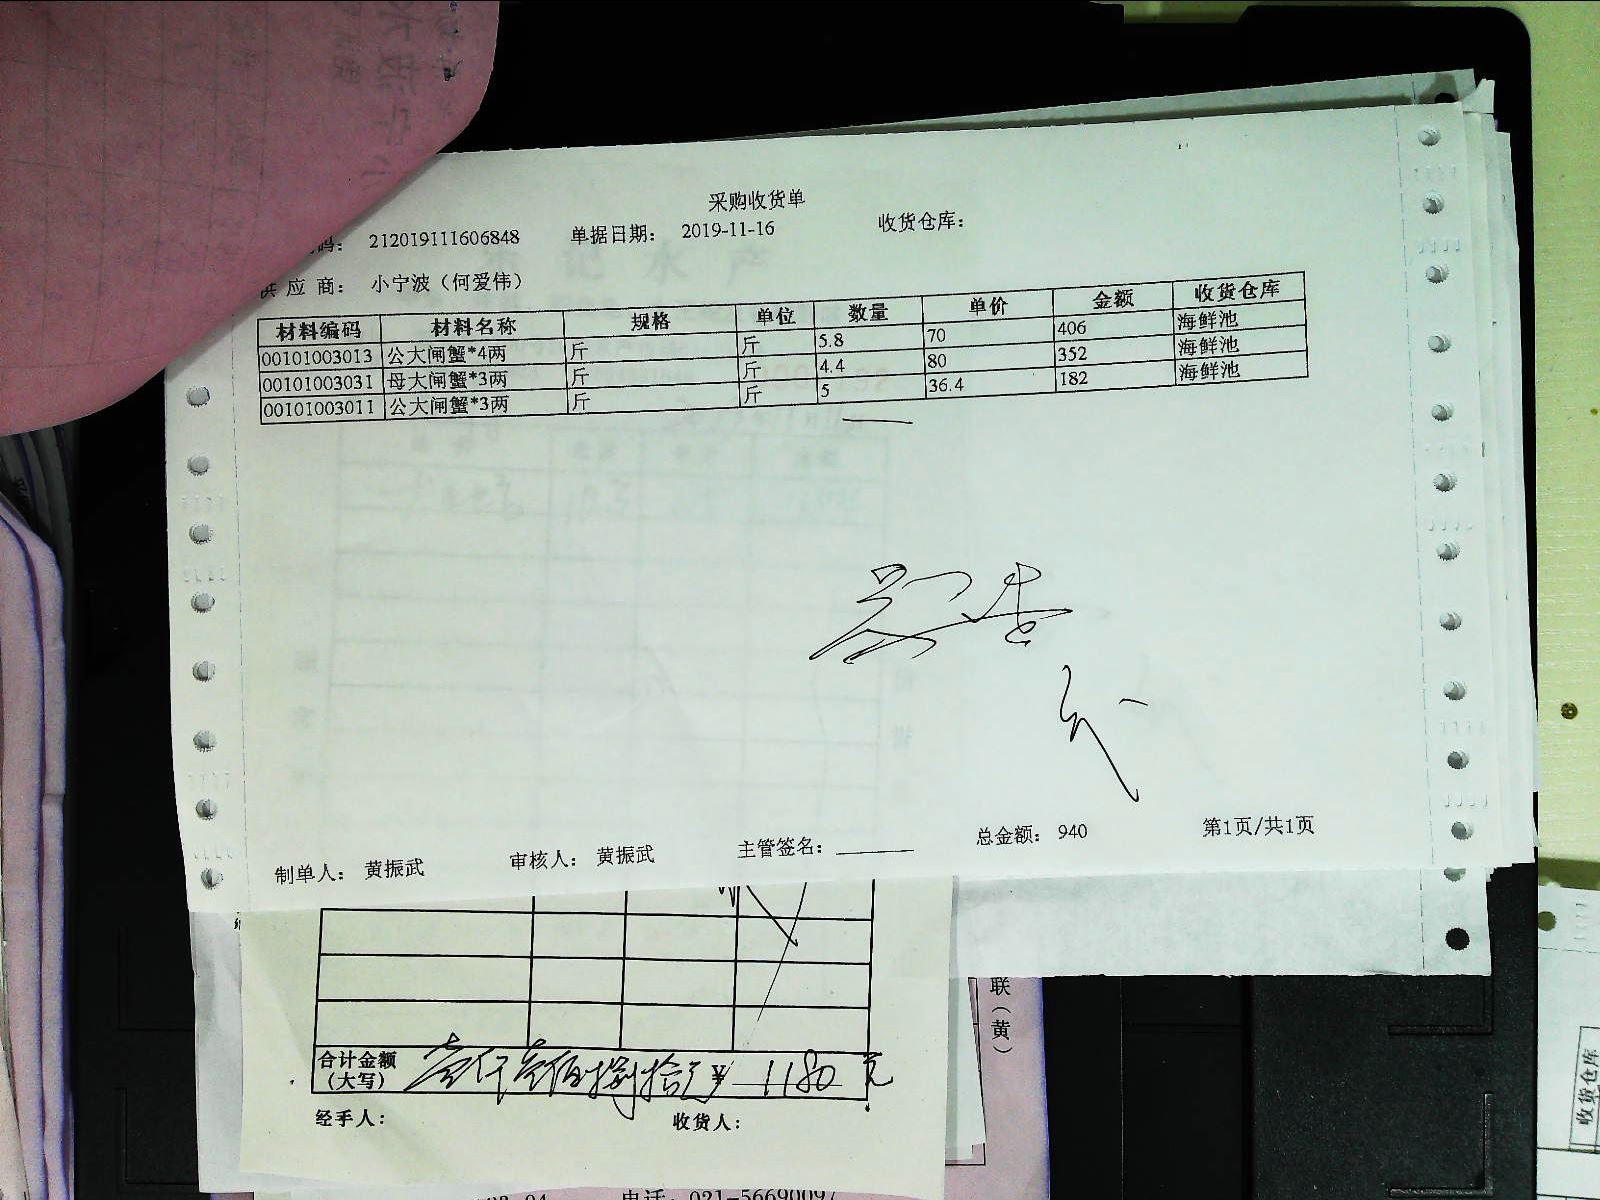 采购收货单
码： 212019111606848 单据日期： 2019-11-16 收货仓库：
供应商： 小宁波（何爱伟）
材料编码 材料名称 规格 单位 数量 单价 金额 收货仓库
00101003013 公大闸蟹*4两 斤 斤 5.8 70 406 海鲜池
00101003031 母大闸蟹*3两 斤 斤 4.4 80 352 海鲜池
00101003011 公大闸蟹*3两 斤 斤 5 36.4 182 海鲜池
制单人： 黄振武 审核人： 黄振武 主管签名： 总金额： 940 第1页/共1页
合计金额（大写） 壹仟壹佰捌拾元 ¥ 1180 元
经手人： 收货人：
联（黄）
电话：021-56690097
收货仓库